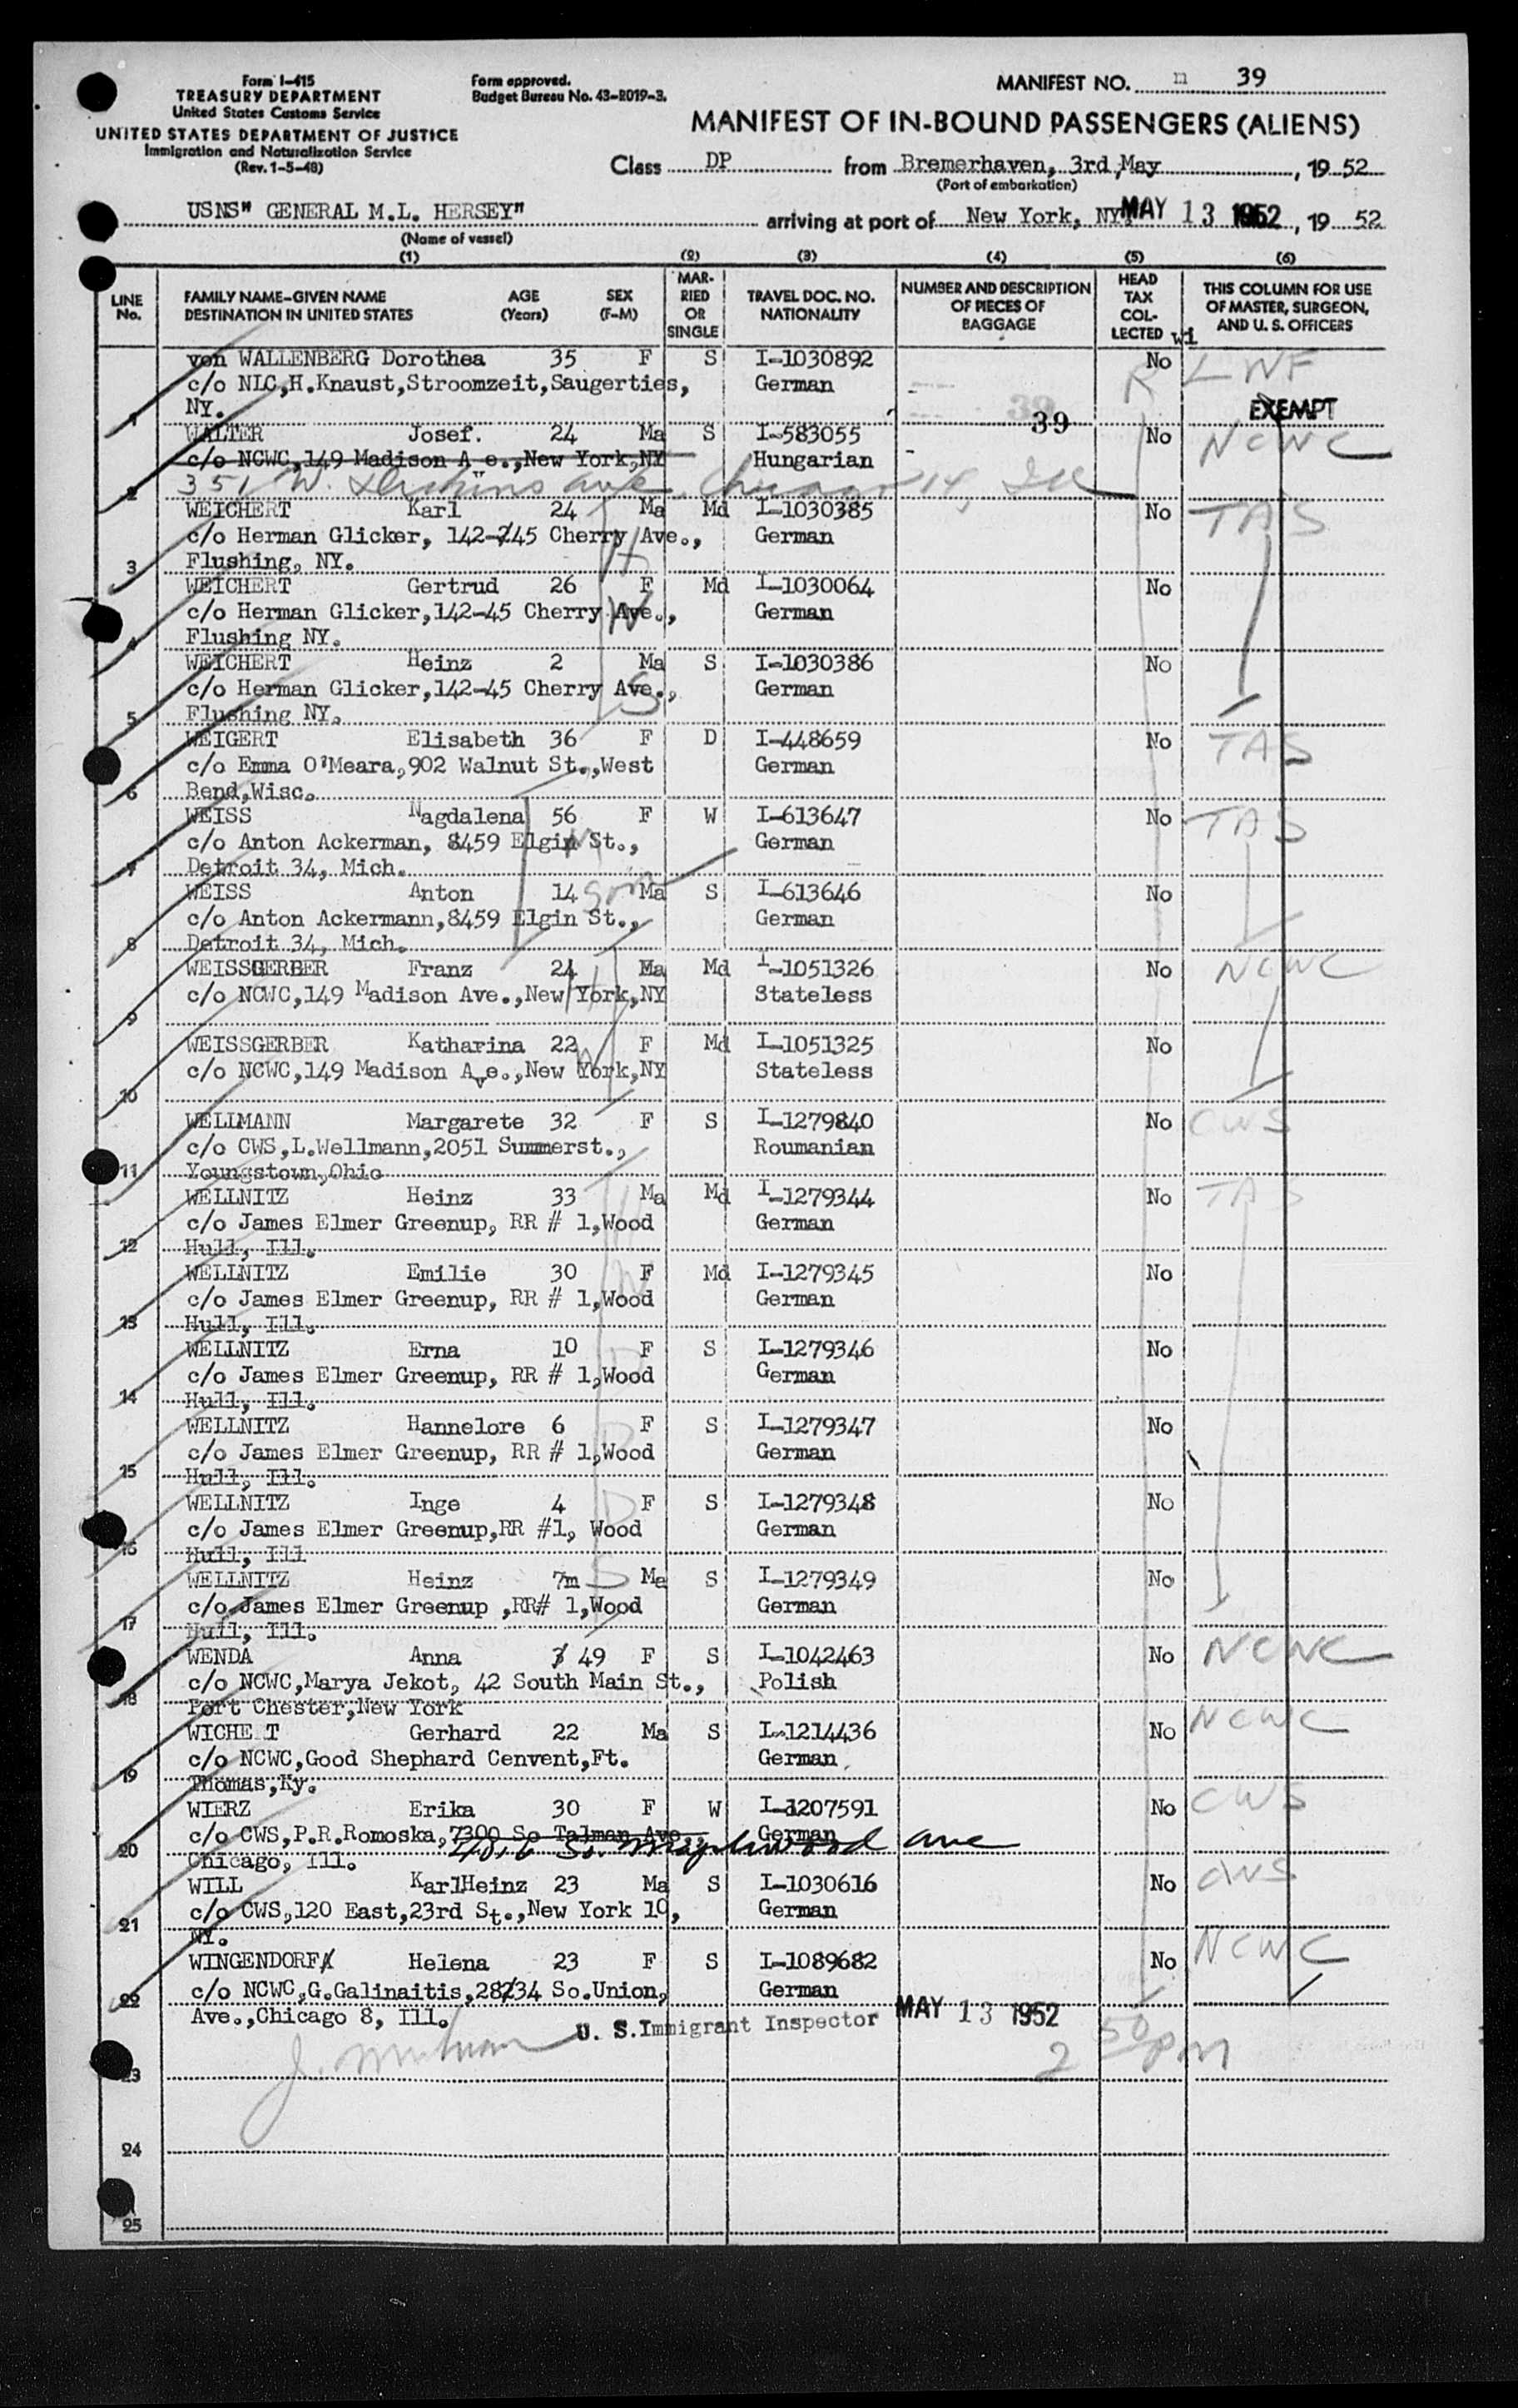 Form I-415
TREASURY DEPARTMENT
United States Customs Service
UNITED STATES DEPARTMENT OF JUSTICE
Immigration and Naturalization Service
(Rev. 1-5-48)
Form approved.
Budget Bureau No. 43-R019-3.
MANIFEST NO. m 39
MANIFEST OF IN-BOUND PASSENGERS (ALIENS)
Class DP from Bremerhaven, 3rd,May , 19 52
(Port of embarkation)
USNS" GENERAL M.L. HERSEY" arriving at port of New York, NY. MAY 13 1952 , 19 52
(Name of vessel)
(1) (2) (3) (4) (5) (6)
LINE No. FAMILY NAME-GIVEN NAME DESTINATION IN UNITED STATES AGE (Years) SEX (F-M) MARRIED OR SINGLE TRAVEL DOC. NO. NATIONALITY NUMBER AND DESCRIPTION OF PIECES OF BAGGAGE HEAD TAX COLLECTED THIS COLUMN FOR USE OF MASTER, SURGEON, AND U. S. OFFICERS
wi
von WALLENBERG Dorothea 35 F S I-1030892 No R LWF
c/o NLC,H.Knaust,Stroomzeit,Saugerties, German
1 NY. EXEMPT
39
WALTER Josef. 24 Ma S I-583055 39 No NCWC
c/o NCWC,149 Madison A e.,New York,NY Hungarian
2 351 W. Ave. Chicago 14, Ill
WEICHERT Karl 24 Ma Md I-1030385 No TAS
c/o Herman Glicker, 142-745 Cherry Ave., German H
3 Flushing, NY.
WEICHERT Gertrud 26 F Md I-1030064 No
c/o Herman Glicker,142-45 Cherry Ave., German W
4 Flushing NY.
WEICHERT Heinz 2 Ma S I-1030386 No
c/o Herman Glicker,142-45 Cherry Ave., German S
5 Flushing NY.
WEIGERT Elisabeth 36 F D I-448659 No TAS
c/o Emma O'Meara,902 Walnut St.,West German
6 Bend,Wisc.
WEISS Nagdalena 56 F W I-613647 No TAS
c/o Anton Ackerman, 8459 Elgin St., German M
7 Detroit 34, Mich.
WEISS Anton 14 son Ma S I-613646 No
c/o Anton Ackermann,8459 Elgin St., German
8 Detroit 34, Mich.
WEISSGERBER Franz 24 Ma Md I-1051326 No NCWC
c/o NCWC,149 Madison Ave.,New York,NY Stateless H
9
WEISSGERBER Katharina 22 F Md I-1051325 No
c/o NCWC,149 Madison Ave.,New York,NY Stateless W
10
WELLMANN Margarete 32 F S I-1279840 No CWS
c/o CWS,L.Wellmann,2051 Summerst., Roumanian
11 Youngstown,Ohio
WELLNITZ Heinz 33 Ma Md I-1279344 No TAS
c/o James Elmer Greenup, RR # 1,Wood German H
12 Hull, Ill.
WELLNITZ Emilie 30 F Md I-1279345 No
c/o James Elmer Greenup, RR # 1,Wood German W
13 Hull, Ill.
WELLNITZ Erna 10 F S I-1279346 No
c/o James Elmer Greenup, RR # 1,Wood German D
14 Hull, Ill.
WELLNITZ Hannelore 6 F S I-1279347 No
c/o James Elmer Greenup, RR # 1,Wood German D
15 Hull, Ill.
WELLNITZ Inge 4 D F S I-1279348 No
c/o James Elmer Greenup,RR #1, Wood German
16 Hull, Ill
WELLNITZ Heinz 7m S Ma S I-1279349 No
c/o James Elmer Greenup ,RR# 1,Wood German
17 Hull, Ill.
WENDA Anna 3 49 F S I-1042463 No NCWC
c/o NCWC,Marya Jekot, 42 South Main St., Polish
18 Port Chester,New York
WICHE T Gerhard 22 Ma S I-1214436 No NCWC
c/o NCWC,Good Shephard Cenvent,Ft. German
19 Thomas,Ky.
WIERZ Erika 30 F W I-1207591 No CWS
c/o CWS,P.R.Romoska,7300 So Talman Ave., German
20 So. Maplewood ave
Chicago, Ill.
WILL KarlHeinz 23 Ma S I-1030616 No CWS
c/o CWS,120 East,23rd St.,New York 10, German
21 NY.
WINGENDORF Helena 23 F S I-1089682 No NCWC
c/o NCWC,G.Galinaitis,28734 So.Union, German
22 Ave.,Chicago 8, Ill.
U. S. Immigrant Inspector MAY 13 1952
J. 2 50 pm
23
24
25